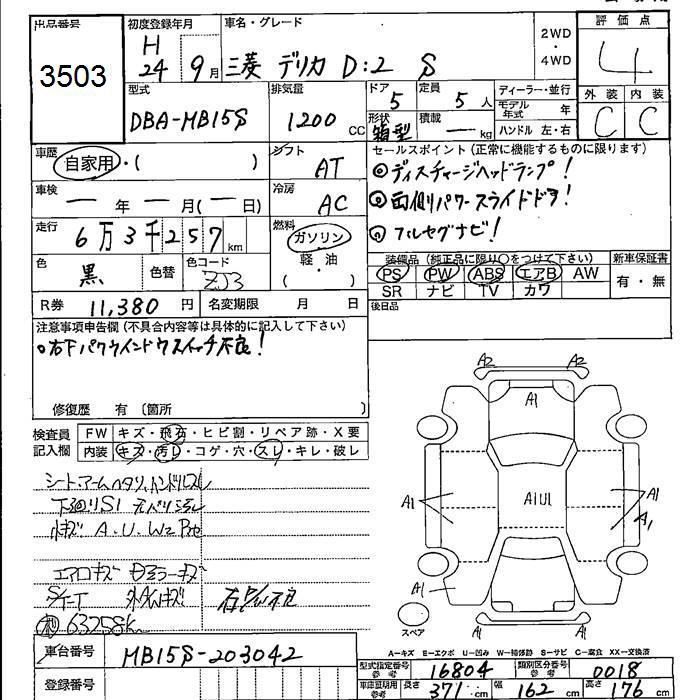 出品番号
3503
初度登録年月
H
24 9月
車名・グレード
三菱 デリカ D:2 S
2WD
・
4WD
評価点
4
型式
DBA-MB15S
排気量
1200 CC
ドア
5
形状
箱型
定員
5 人
積載
— kg
ディーラー・並行
モデル年式 年
ハンドル 左・右
外装 内装
C C
車歴
自家用・( )
シフト
AT
セールスポイント(正常に機能するものに限ります)
◎ディスチャージヘッドランプ!
◎両側パワースライドドア!
◎フルセグナビ!
車検
— 年 — 月(— 日)
冷房
AC
走行
6万3千257km
燃料
ガソリン
軽・油
・
( )
色
黒
色替
色コード
ZJ3
装備品(純正品に限り○をつけて下さい)
PS PW ABS エアB AW
SR ナビ TV カワ
新車保証書
有・無
R券 11,380 円
名変期限 月 日
後日品
注意事項申告欄(不具合内容等は具体的に記入して下さい)
○右下パワウインドウスイッチ不良!
修復歴 有(箇所 )
検査員
記入欄
FW キズ・飛石・ヒビ割・リペア跡・X要
内装 キズ・汚レ・コゲ・穴・スレ・キレ・破レ
シートアームヘタリ,ハンドルスレ
下廻りS1
小キズ A.U.W
エアロキズ ドアミラーキズ
外A/Wキズ
63258km
A2 A2
A1
A1 A1U1 A1
A1
A1
A2 A2
スペア
A-キズ E-エクボ U-凹み W-補修跡 S-サビ C-腐食 XX-交換済
車台番号 MB15S-203042
登録番号
型式指定番号
参考
16804
類別区分番号
参考
0018
車庫証明用
参考
長さ 371 cm 幅 162 cm 高さ 176 cm